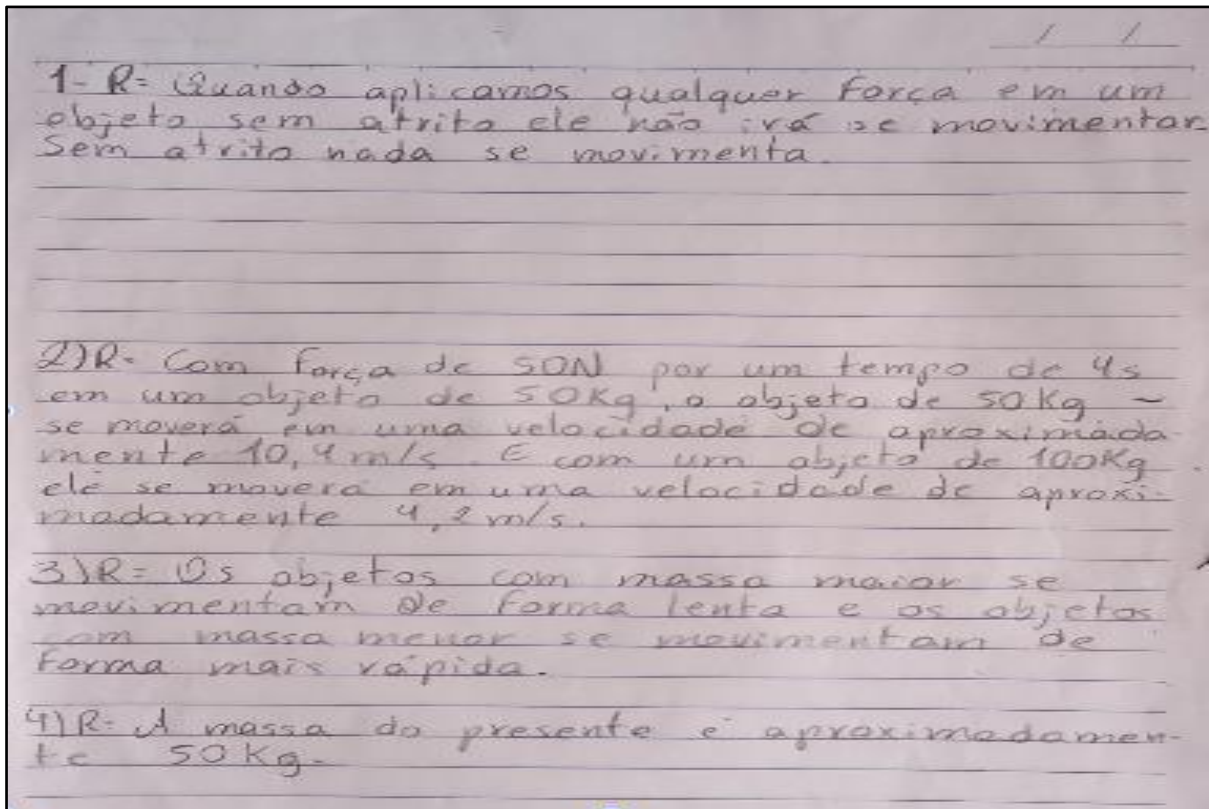 / /
1- R= Quando aplicamos qualquer força em um
objeto sem atrito ele não irá se movimentar.
Sem atrito nada se movimenta.
2)R- Com força de 50N por um tempo de 4s
em um objeto de 50Kg, o objeto de 50Kg ~
se moverá em uma velocidade de aproximada-
mente 10,4m/s. E com um objeto de 100Kg
ele se movera em uma velocidade de aproxi-
madamente 4,2m/s.
3)R= Os objetos com massa maior se
movimentam de forma lenta e os objetos
com massa menor se movimentam de
forma mais rápida.
4)R- A massa do presente é aproximadamen-
te 50Kg.